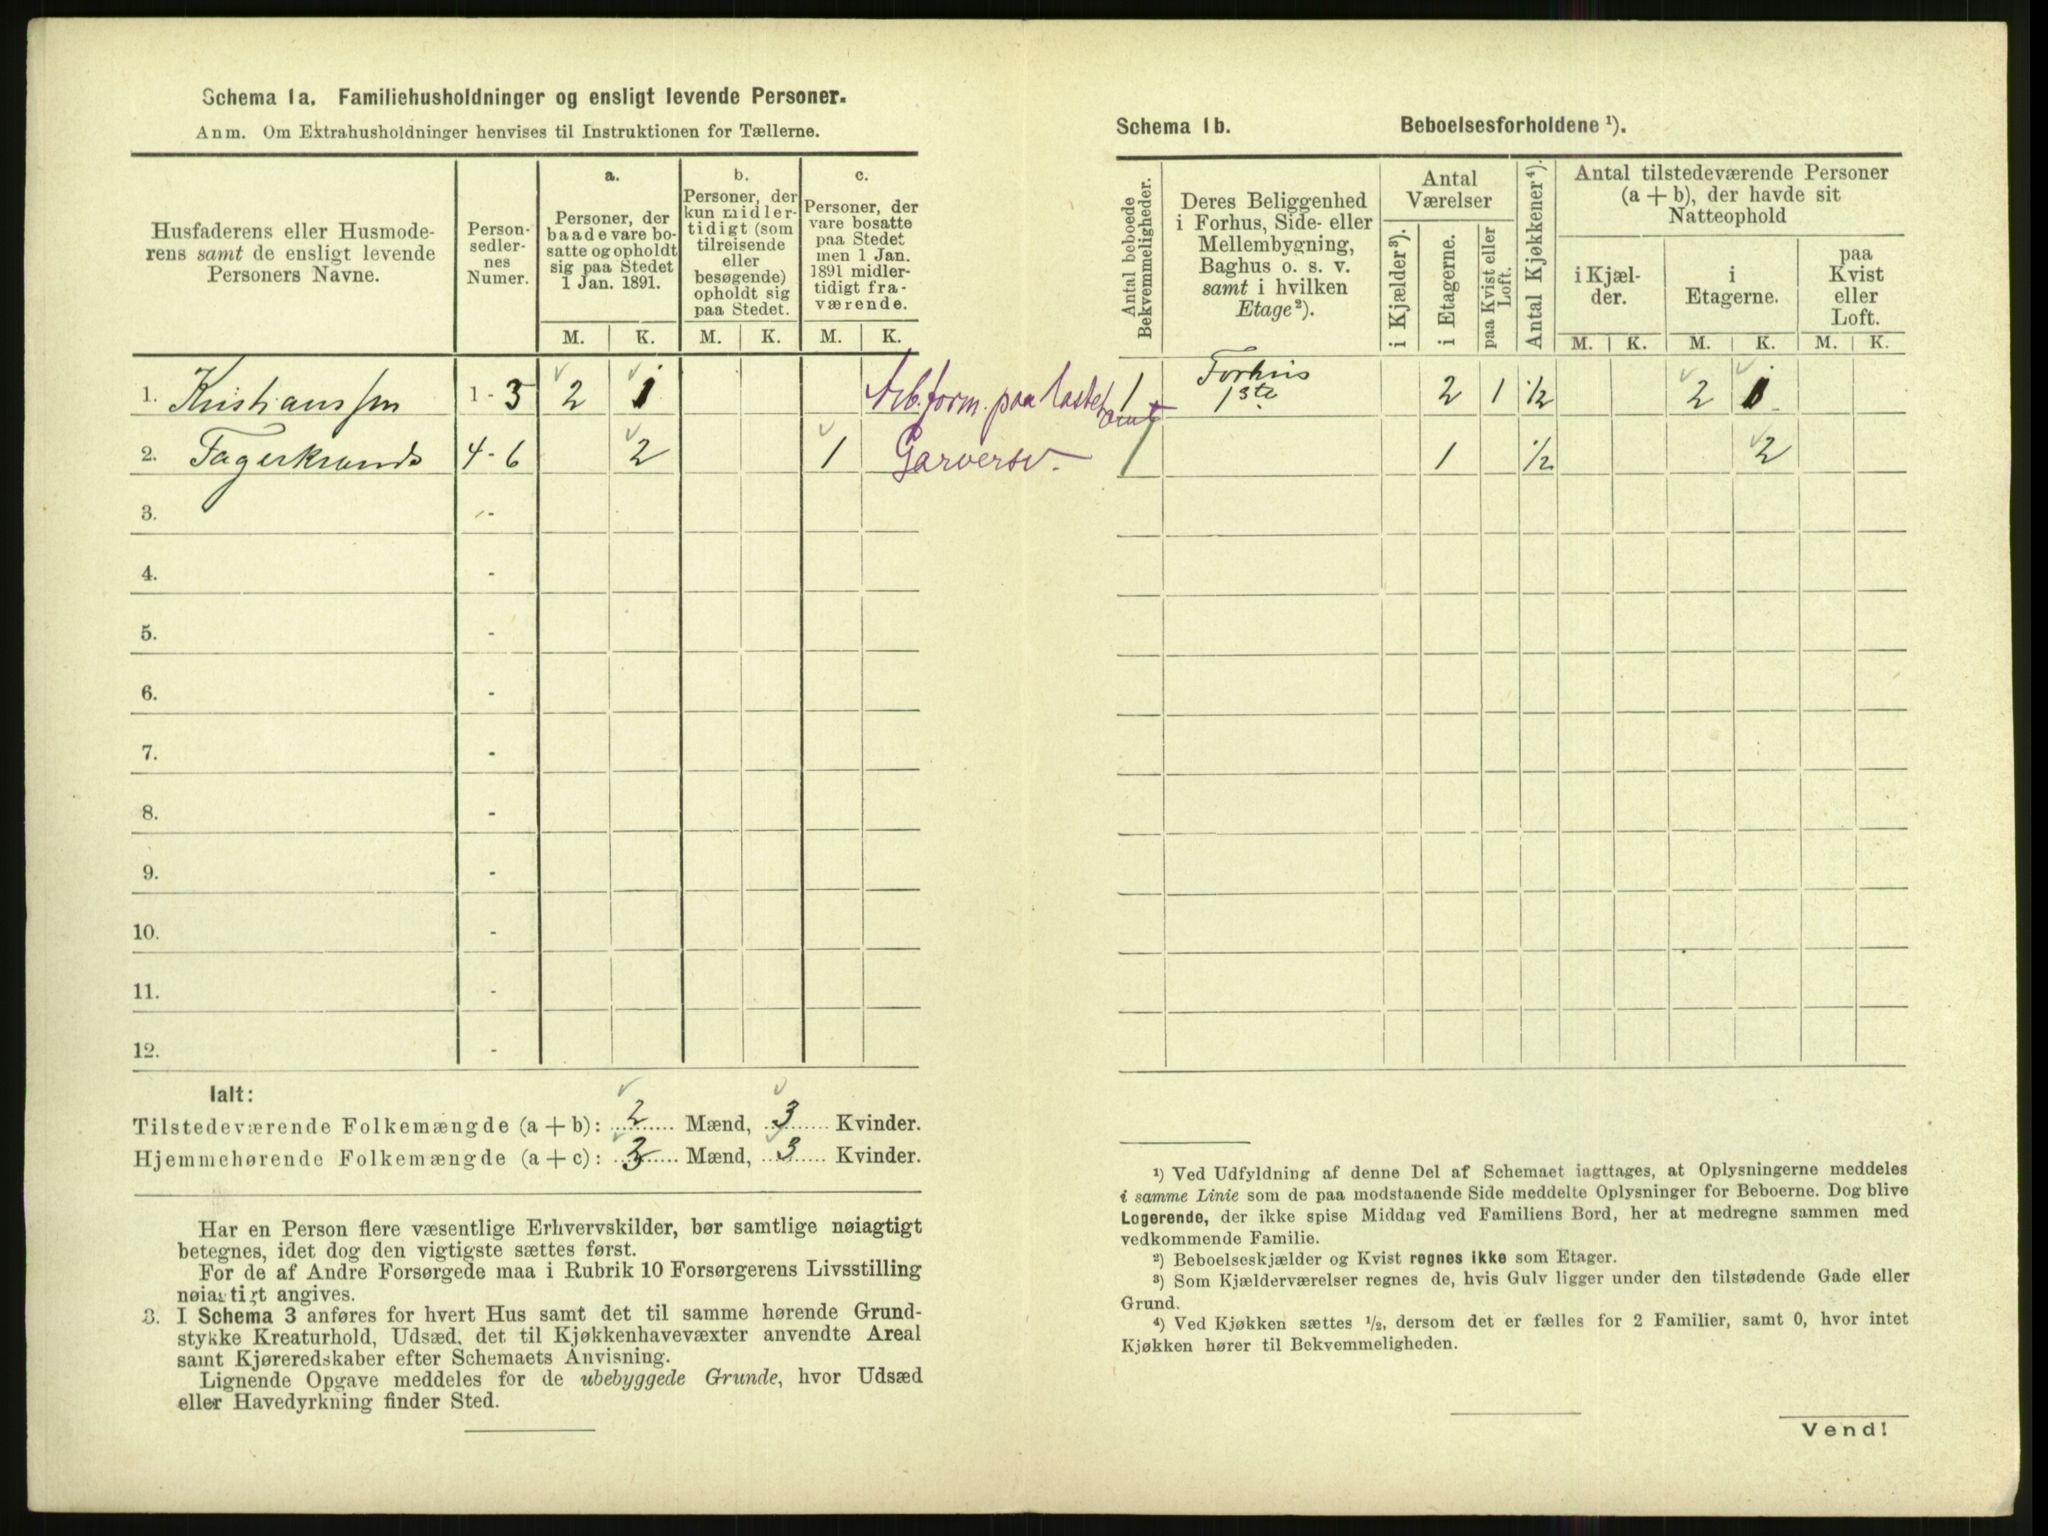 Schema 1a. Familiehusholdninger og ensligt levende Personer.
Anm. Om Extrahusholdninger henvises til Instruktionen for Tællerne.
Husfaderens eller Husmode-
rens samt de ensligt levende
Personers Navne.
Person-
sedler-
nes
Numer.
a.
Personer, der
baade vare bo-
satte og opholdt
sig paa Stedet
1 Jan. 1891.
b.
Personer, der
kun midler-
tidigt (som
tilreisende
eller
besøgende)
opholdt sig
paa Stedet.
c.
Personer, der
vare bosatte
paa Stedet
men 1 Jan.
1891 midler-
tidigt fra-
værende.
M. K. M. K. M. K.
1. Kristianssen 1 - 3 2 1 Arb.form. paa
2. Fagerstrands 4 - 6 2 1 Garversv.
3. -
4. -
5. -
6. -
7. -
8. -
9. -
10. -
11. -
12. -
Ialt:
Tilstedeværende Folkemængde (a + b): 2 Mænd, 3 Kvinder.
Hjemmehørende Folkemængde (a + c): 3 Mænd, 3 Kvinder.
Har en Person flere væsentlige Erhvervskilder, bør samtlige nøiagtigt
betegnes, idet dog den vigtigste sættes først.
For de af Andre Forsørgede maa i Rubrik 10 Forsørgerens Livsstilling
nøiagtigt angives.
3. I Schema 3 anføres for hvert Hus samt det til samme hørende Grund-
stykke Kreaturhold, Udsæd, det til Kjøkkenhavevæxter anvendte Areal
samt Kjøreredskaber efter Schemaets Anvisning.
Lignende Opgave meddeles for de ubebyggede Grunde, hvor Udsæd
eller Havedyrkning finder Sted.
Schema 1b. Beboelsesforholdene ¹).
Antal beboede
Bekvemmeligheder.
Deres Beliggenhed
i Forhus, Side- eller
Mellembygning,
Baghus o. s. v.
samt i hvilken
Etage²).
Antal
Værelser
i Kjælder³).
i Etagerne.
paa Kvist eller
Loft.
Antal Kjøkkener⁴).
Antal tilstedeværende Personer
(a + b), der havde sit
Natteophold
i Kjæl-
der.
i
Etagerne.
paa
Kvist
eller
Loft.
M. K. M. K. M. K.
1 Forhus
1ste 2 1 1/2 2 1
1 1 1/2 2
¹) Ved Udfyldning af denne Del af Schemaet iagttages, at Oplysningerne meddeles
i samme Linie som de paa modstaaende Side meddelte Oplysninger for Beboerne. Dog blive
Logerende, der ikke spise Middag ved Familiens Bord, her at medregne sammen med
vedkommende Familie.
²) Beboelseskjælder og Kvist regnes ikke som Etager.
³) Som Kjælderværelser regnes de, hvis Gulv ligger under den tilstødende Gade eller
Grund.
⁴) Ved Kjøkken sættes ½, dersom det er fælles for 2 Familier, samt 0, hvor intet
Kjøkken hører til Bekvemmeligheden.
Vend!